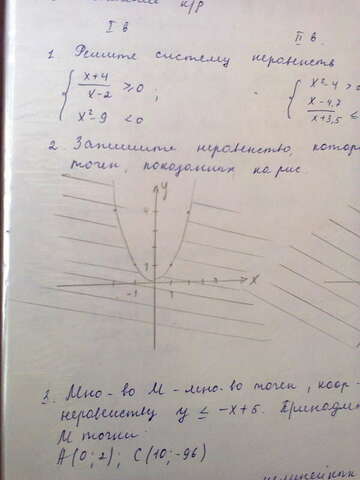 к/р
I в
II в.
1. Решите систему неравенств
x+4
x-2 ≥0 ;
x²-4 >
x²-9 <0
x-4,7
x+3,5 ≤
2. Запишите неравенство,
точек, показанных на рис.
y
4
1
-1
1
x
3. Мно-во М - мно-во точек, коор-
неравенству y ≤ -x+5.
М точки:
A(0;2); C(10;-96)